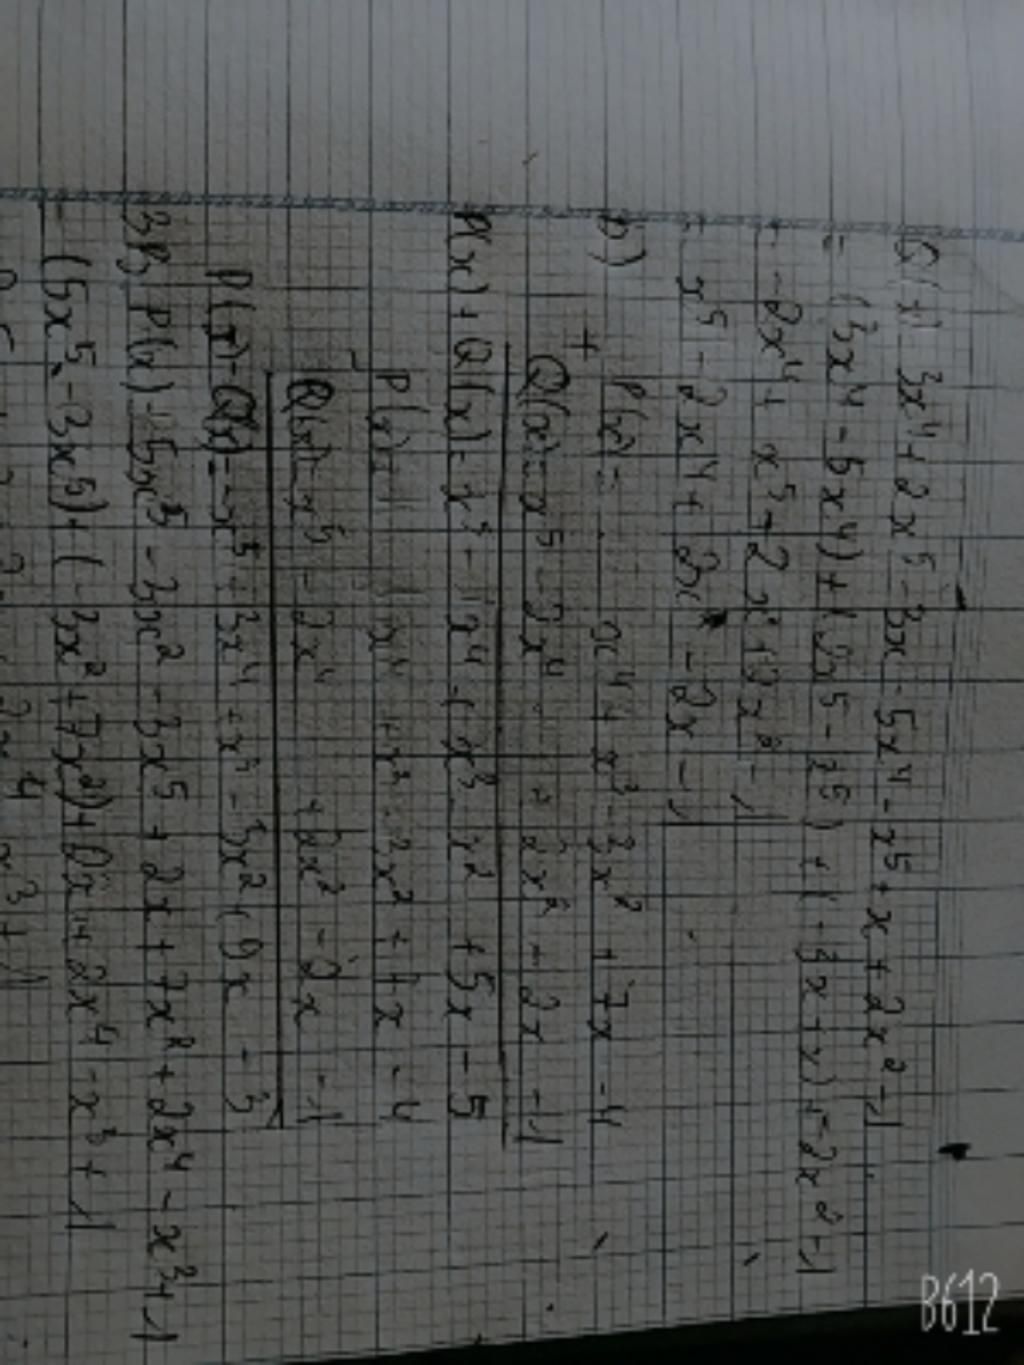 3x⁴ + 2x⁵ - 3x - 5x⁴ - x⁵ + x + 2x² - 1
= (3x⁴ - 5x⁴) + (2x⁵ - x⁵) + (-3x + x) + 2x² - 1
= -2x⁴ + x⁵ - 2x + 2x² - 1
= x⁵ - 2x⁴ + 2x² - 2x - 1
b)
P(x) = x⁴ + x³ - 3x² + 7x - 4
+
Q(x) = x⁵ - 2x⁴ + 2x² - 2x - 1
P(x) + Q(x) = x⁵ - x⁴ + x³ - x² + 5x - 5
P(x) = x⁴ + x³ - 3x² + 7x - 4
-
Q(x) = x⁵ - 2x⁴ + 2x² - 2x - 1
P(x) - Q(x) = -x⁵ + 3x⁴ + x³ - 3x² + 9x - 3
P(x) = 5x⁵ - 3x² - 3x⁵ + 2x + 7x² + 2x⁴ - x³ + 1
= (5x⁵ - 3x⁵) + (-3x² + 7x²) + 2x + 2x⁴ - x³ + 1